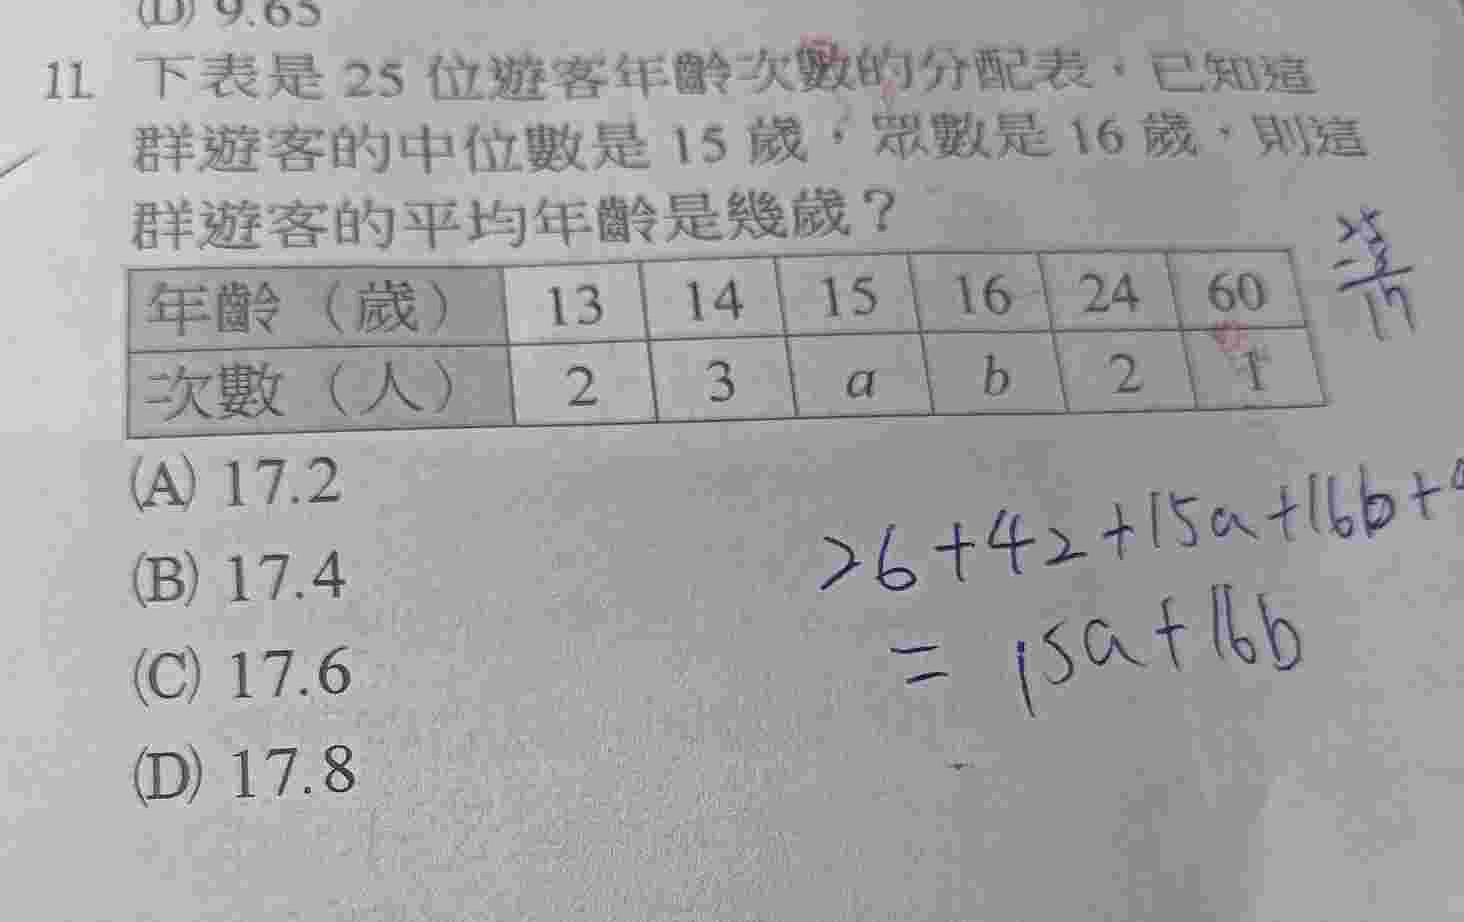 (D) 9.65
11. 下表是 25 位遊客年齡次數的分配表，已知這
群遊客的中位數是 15 歲，眾數是 16 歲，則這
群遊客的平均年齡是幾歲？
年齡（歲） 13 14 15 16 24 60
次數（人） 2 3 a b 2 1
25
-8
17
(A) 17.2
(B) 17.4
(C) 17.6
(D) 17.8
26+42+15a+16b+
= 15a+16b